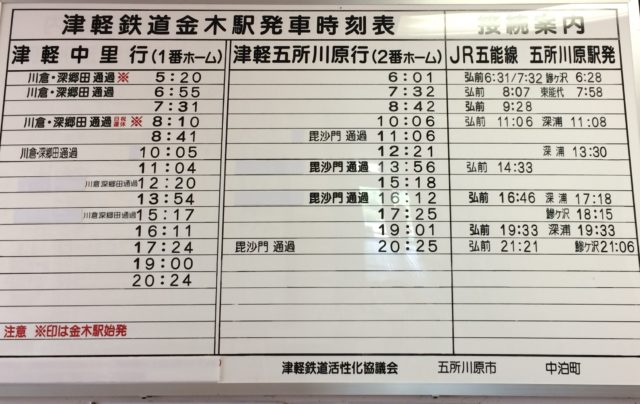 津軽鉄道金木駅発車時刻表 接続案内
津軽中里行(1番ホーム) 津軽五所川原行(2番ホーム) JR五能線 五所川原駅発
川倉・深郷田通過※ 5:20 6:01 弘前6:31/7:32 鰺ヶ沢 6:28
川倉・深郷田通過 6:55 7:32 弘前 8:07 東能代 7:58
7:31 8:42 弘前 9:28
川倉・深郷田通過 ※ 8:10 10:06 弘前 11:06 深浦 11:08
8:41 毘沙門 通過 11:06
川倉・深郷田通過 10:05 12:21 深浦 13:30
11:04 毘沙門 通過 13:56 弘前 14:33
川倉深郷田通過 12:20 15:18
13:54 毘沙門 通過 16:12 弘前 16:46 深浦 17:18
川倉深郷田通過 15:17 17:25 鰺ケ沢 18:15
16:11 19:01 弘前 19:33 深浦 19:33
17:24 毘沙門 通過 20:25 弘前 21:21 鰺ケ沢 21:06
19:00
20:24
注意 ※印は金木駅始発
津軽鉄道活性化協議会 五所川原市 中泊町